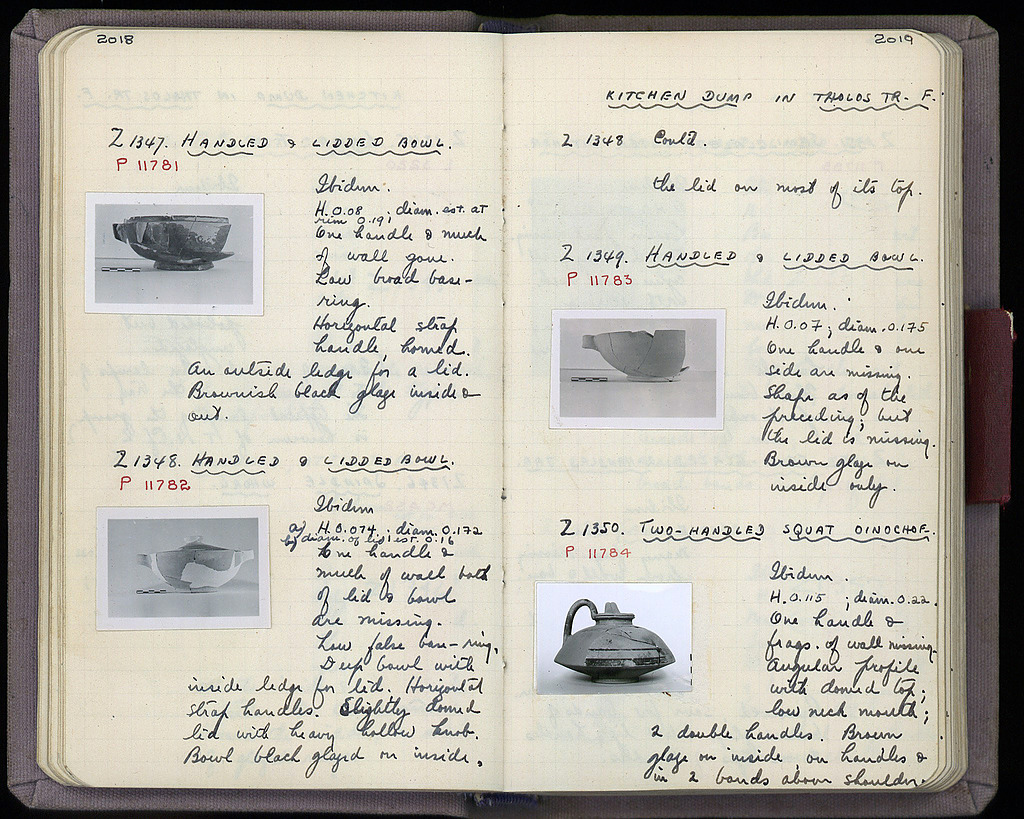 2018
Z 1347. HANDLED & LIDDED BOWL.
P 11781
Ibidum.
H. 0.08 ; diam. est. at
rim 0.19;
One handle & much
of wall gone.
Low broad base-
ring.
Horizontal strap
handle, horned.
An outside ledge for a lid.
Brownish black glaze inside &
out.
Z 1348. HANDLED & LIDDED BOWL.
P 11782
Ibidum
a) H. 0.074 ; diam. 0.172
b) diam. of lid est. 0.16
One handle &
much of wall both
of lid & bowl
are missing.
Low false base-ring.
Deep bowl with
inside ledge for lid. Horizontal
strap handles. Slightly domed
lid with heavy hollow knob.
Bowl black glazed on inside,
2019
KITCHEN DUMP IN THOLOS TR. F.
Z 1348 Cont'd.
the lid on most of its top.
Z 1349. HANDLED & LIDDED BOWL.
P 11783
Ibidum.
H. 0.07 ; diam. 0.175
One handle & one
side are missing.
Shape as of the
preceding, but
the lid is missing.
Brown glaze on
inside only.
Z 1350. TWO-HANDLED SQUAT OINOCHOE.
P 11784
Ibidum.
H. 0.115 ; diam. 0.22.
One handle &
frags. of wall missing.
Angular profile
with domed top;
low neck mouth;
2 double handles. Brown
glaze on inside on handles &
in 2 bands above shoulder.